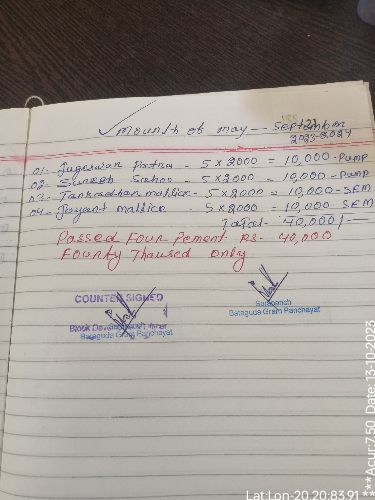 Mounth of may - September
2023-2024
01- Jugeswar Patra - 5 x 2000 = 10,000 - Pump
02- Suresh Sahoo - 5 x 2000 = 10,000 - Pump
03- Tankadhar mallick - 5 x 2000 = 10,000 - SEM
04- Jayant mallick - 5 x 2000 = 10,000 SEM
Total- 40,000/-
Passed Four Pement RS- 40,000
Founty Thaused only
COUNTER SIGNED
Sarapanch
Bataguda Gram Panchayat
Block De
Bataguda Gram Panchayat
Lat:Lon-20.20:83.91***Acur:7.50 Date: 13-10-2023